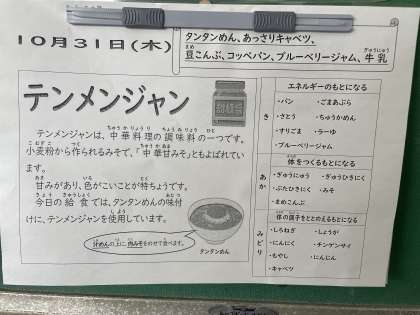 10月31日(木)
タンタンめん、あっさりキャベツ、
豆こんぶ、コッペパン、ブルーベリージャム、牛乳
テンメンジャン
テンメンジャンは、中華料理の調味料の一つです。
小麦粉から作られるみそで、「中華甘みそ」ともよばれてい
ます。
甘みがあり、色がこいことが特ちょうです。
今日の給食では、タンタンめんの味付
けに、テンメンジャンを使用しています。
汁めんの上に、肉みそをのせて食べます。
タンタンめん
エネルギーのもとになる
き
・パン ・ごまあぶら
・さとう ・ちゅうかめん
・すりごま ・ラーゆ
・ブルーベリージャム
体をつくるもとになる
あか
・ぎゅうにゅう ・ぎゅうひきにく
・ぶたひきにく ・みそ
・まめこんぶ
体の調子をととのえるもとになる
みどり
・しろねぎ ・しょうが
・にんにく ・チンゲンサイ
・もやし ・にんじん
・キャベツ